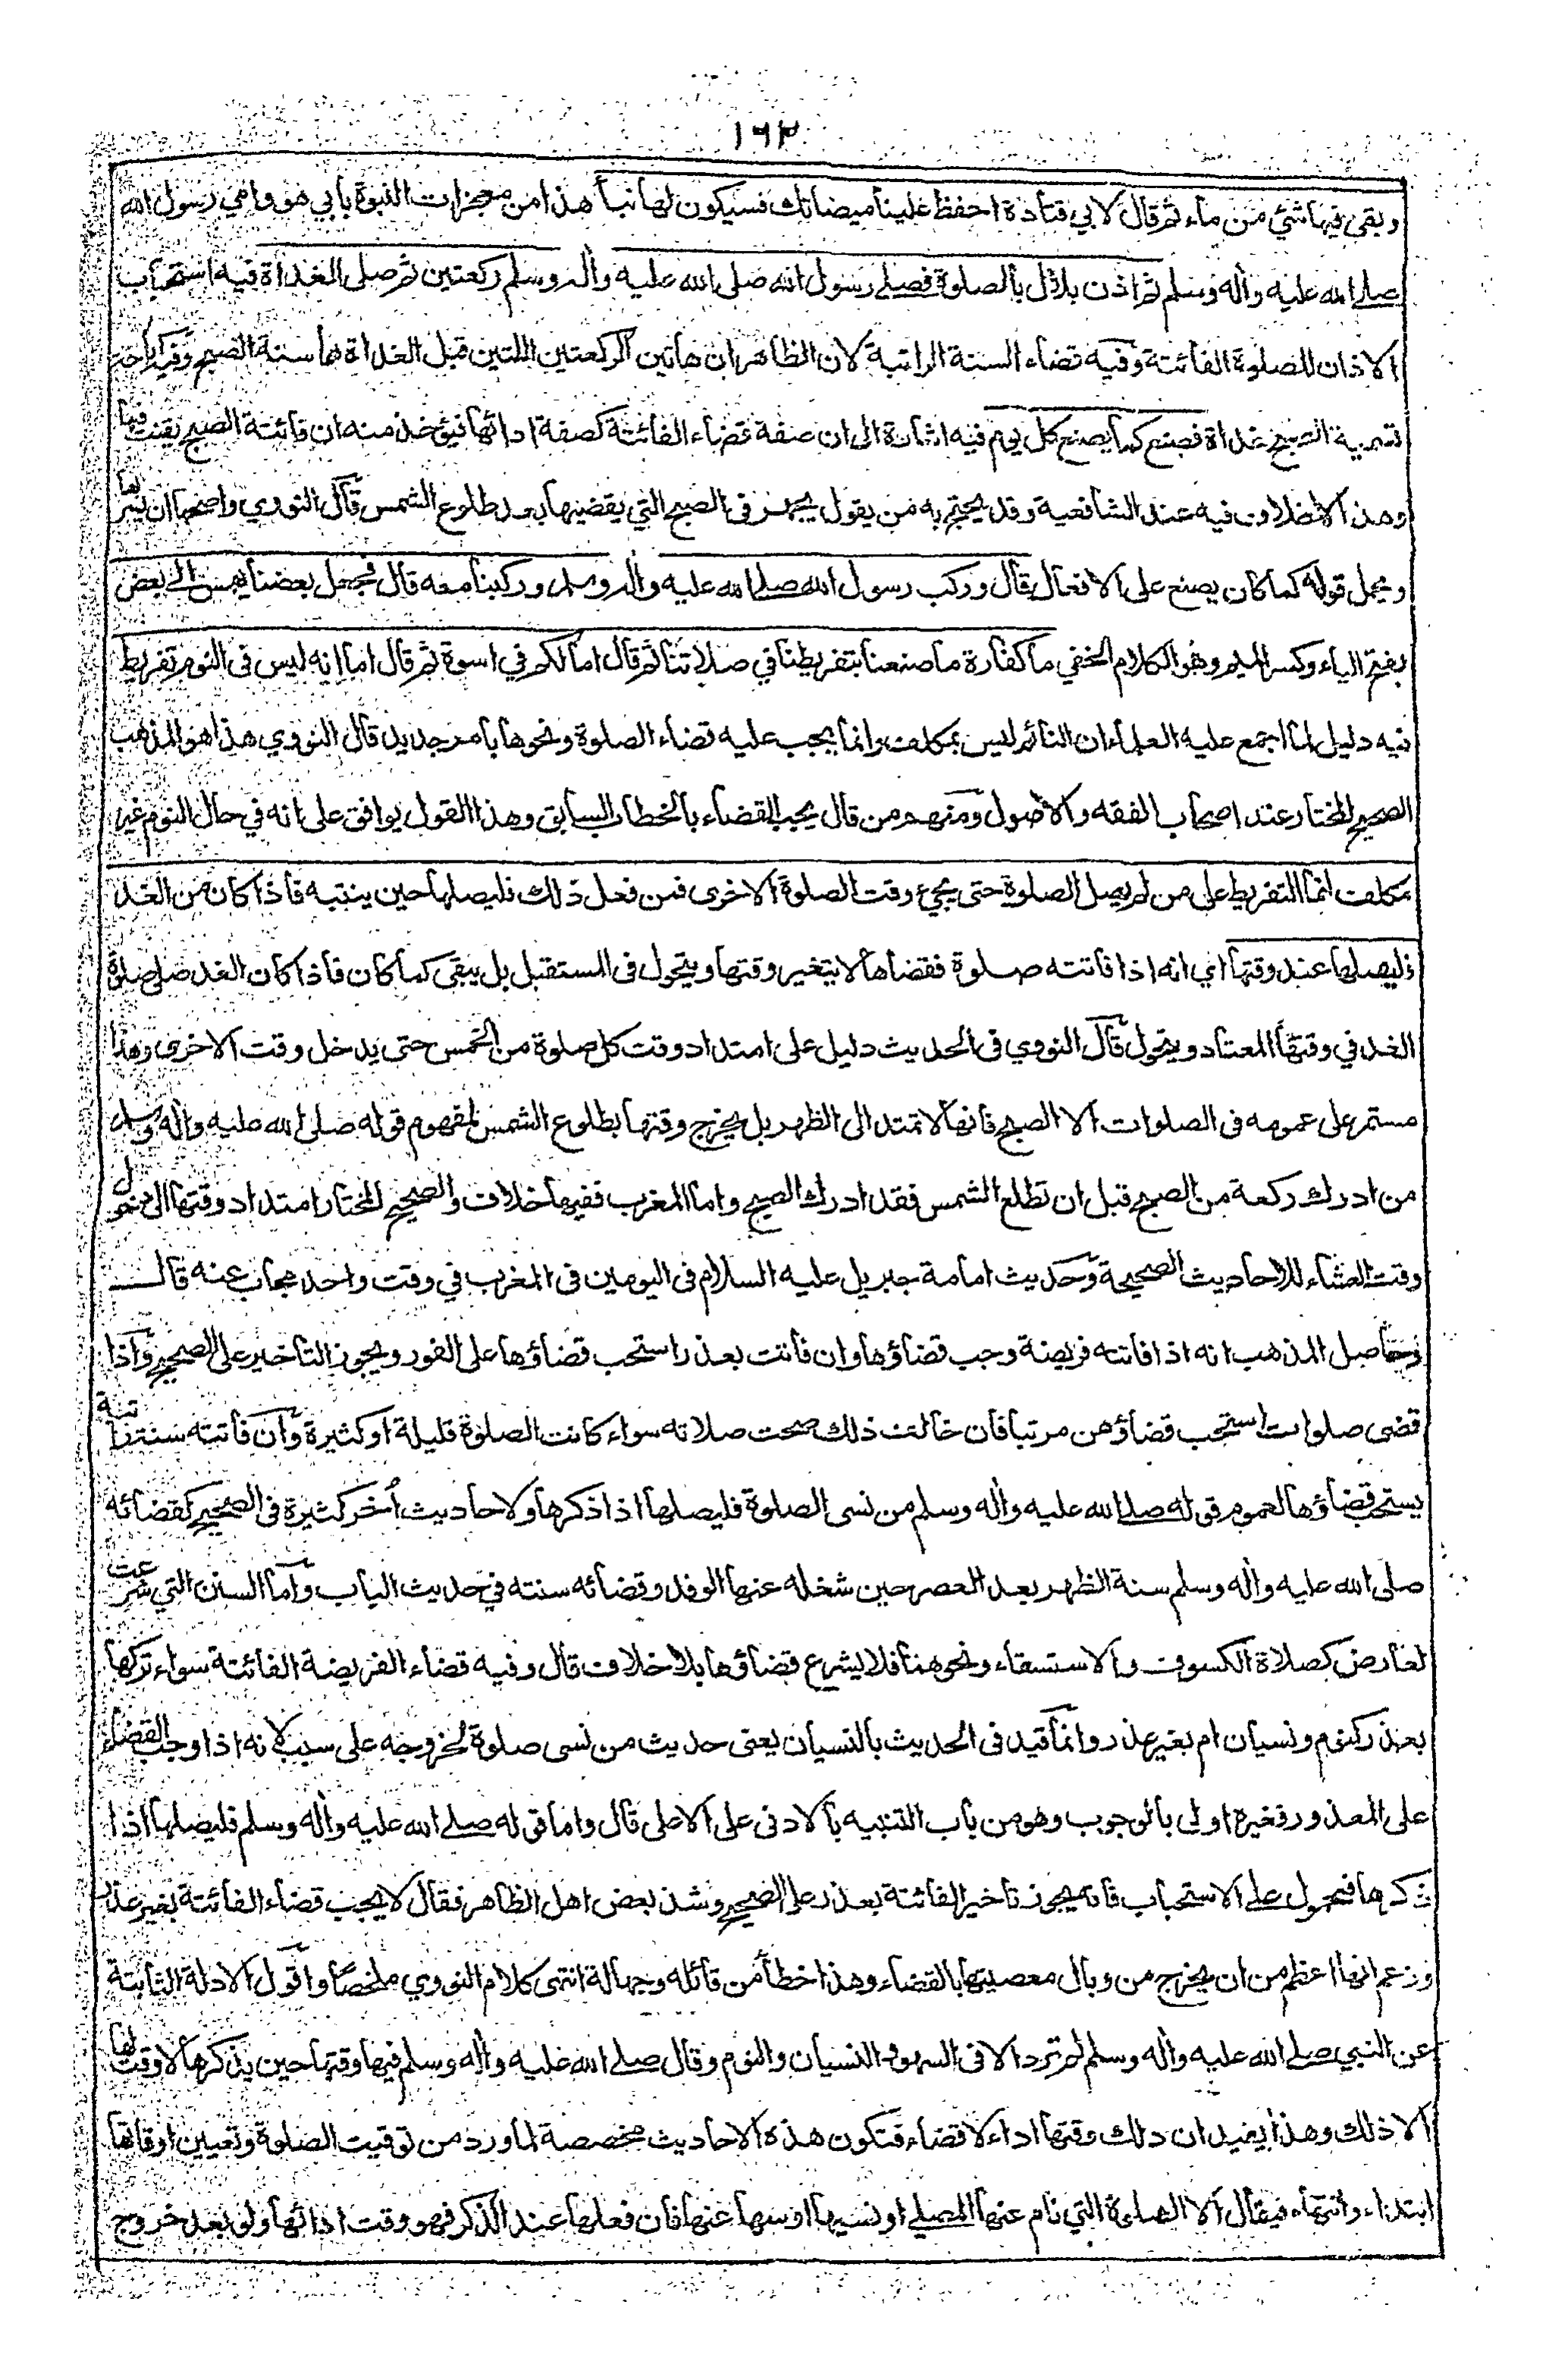 ١٦٢
وبقى فيها شئ من ماء ثم قال لابي قتادة احفظ علينا ميضاتك فسيكون لها نبأ هذا من معجزات النبوة بأبي هو وامي رسول الله
صلے الله عليه وأله وسلم ثم اذن بلال بالصلوة فصلے رسول الله صلى الله عليه والہ وسلم ركعتين ثم صلى الغداة فيه استحباب
الاذان للصلوة الفائتة وفيه قضاء السنة الراتبة لان الظاهر ان هاتين الركعتين اللتين قبل الغداة هما سنة الصبح وفيه
تسمية الصبح غداة فصنع كما يصنع كل يوم فيه اشارة الى ان صفة قضاء الفائتة كصفة ادائها فيؤخذ منه ان فائتة الصبح يقنت فيها
وهذا لا خلاف فيه عند الشافعية وقد يحتج به من يقول يجهر فى الصبح التي يقضيها بعد طلوع الشمس قال النووي واصحها ان يسر بها
ويحمل قوله كما كان يصنع على الافعال قال وركب رسول الله صلے الله عليه والہ وسلم وركبنا معه قال فجعل بعضنا يهمس الے بعض
بفتح الياء وكسر الميم وهو الكلام الخفي ما كفارة ما صنعنا بتفريطنا في صلاتنا ثم قال اما لكم في اسوة ثم قال اما انه ليس فى النوم تفريط
فيه دليل لما اجمع عليه العلماء ان النائم ليس بمكلف وانما يجب عليه قضاء الصلوة ونحوها بامر جديد قال النووي هذا هو المذهب
الصحيح المختار عند اصحاب الفقه والاصول ومنهم من قال يجب القضاء بالخطاب السابق وهذا القول يوافق على انه في حال النوم غير
مكلف انما التفريط على من لم يصل الصلوة حتى يجئ وقت الصلوة الاخرى فمن فعل ذلك فليصلها حين ينتبه فاذا كان من الغد
فليصلها عند وقتها اي انه اذا فاتته صلوة فقضاها لا يتغير وقتها ويتحول فى المستقبل بل يبقى كما كان فاذا كان الغد صلى صلوة
الغد في وقتها المعتاد ويتحول قال النووي فى الحديث دليل على امتداد وقت كل صلوة من الخمس حتى يدخل وقت الاخرى وهذا
مستمر على عمومه فى الصلوات الا الصبح فانها لا تمتد الى الظهر بل يخرج وقتها بطلوع الشمس لمفهوم قوله صلى الله عليه واله وسلم
من ادرك ركعة من الصبح قبل ان تطلع الشمس فقد ادرك الصبح واما المغرب ففيها خلاف والصحيح المختار امتداد وقتها الى دخول
وقت العشاء للاحاديث الصحيحة وحديث امامة جبريل عليه السلام فى اليومين فى المغرب في وقت واحد مجاب عنه قال
وحاصل المذهب انه اذا فاتته فريضة وجب قضاؤها وان فاتت بعذر استحب قضاؤها على الفور ويجوز التأخير على الصحيح واذا
قضى صلوات استحب قضاؤهن مرتبا فان خالف ذلك صحت صلاته سواء كانت الصلوة قليلة او كثيرة وان فاتته سنة راتبة
يستحب قضاؤها لعموم قوله صلے الله عليه واله وسلم من نسى الصلوة فليصلها اذا ذكرها ولاحاديث أخر كثيرة فى الصحيح كقضائه
صلى الله عليه واله وسلم سنة الظهر بعد العصر حين شغله عنها الوفد وقضائه سنته في حديث الباب واما السنن التي شرعت
لعارض كصلاة الكسوف والاستسقاء ونحو هنا فلا يشرع قضاؤها بلا خلاف قال وفيه قضاء الفريضة الفائتة سواء تركها
بعذر كنوم ونسيان ام بغير عذر وانما قيد فى الحديث بالنسيان يعنى حديث من نسى صلوة لخروجه على سبب لانه اذا وجب القضاء
على المعذور فغيره اولى بالوجوب وهو من باب التنبيه بالادنى على الاعلى قال واما قوله صلے الله عليه واله وسلم فليصلها اذا
ذكرها فمحمول على الاستحباب فانه يجوز تاخير الفائتة بعذر على الصحيح وشذ بعض اهل الظاهر فقال لا يجب قضاء الفائتة بغير عذر
وزعم انها اعظم من ان يخرج من وبال معصيتها بالقضاء وهذا خطأ من قائله وجهالة انتهى كلام النووي ملخصًا واقول الادلة الثابتة
عن النبي صلے الله عليه واله وسلم لم ترد الا فى السهو والنسيان والنوم وقال صلے الله عليه واله وسلم فيها وقتها حين يذكرها لا وقت لها
الا ذلك وهذا يفيد ان ذلك وقتها اداء لا قضاء فتكون هذه الاحاديث مخصصة لما ورد من توقيت الصلوة وتعيين اوقاتها
ابتداء وانتهاء فيقال الا الصلوة التي نام عنها المصلے او نسيها او سها عنها فان فعلها عند الذكر فهو وقت ادائها ولو بعد خروج